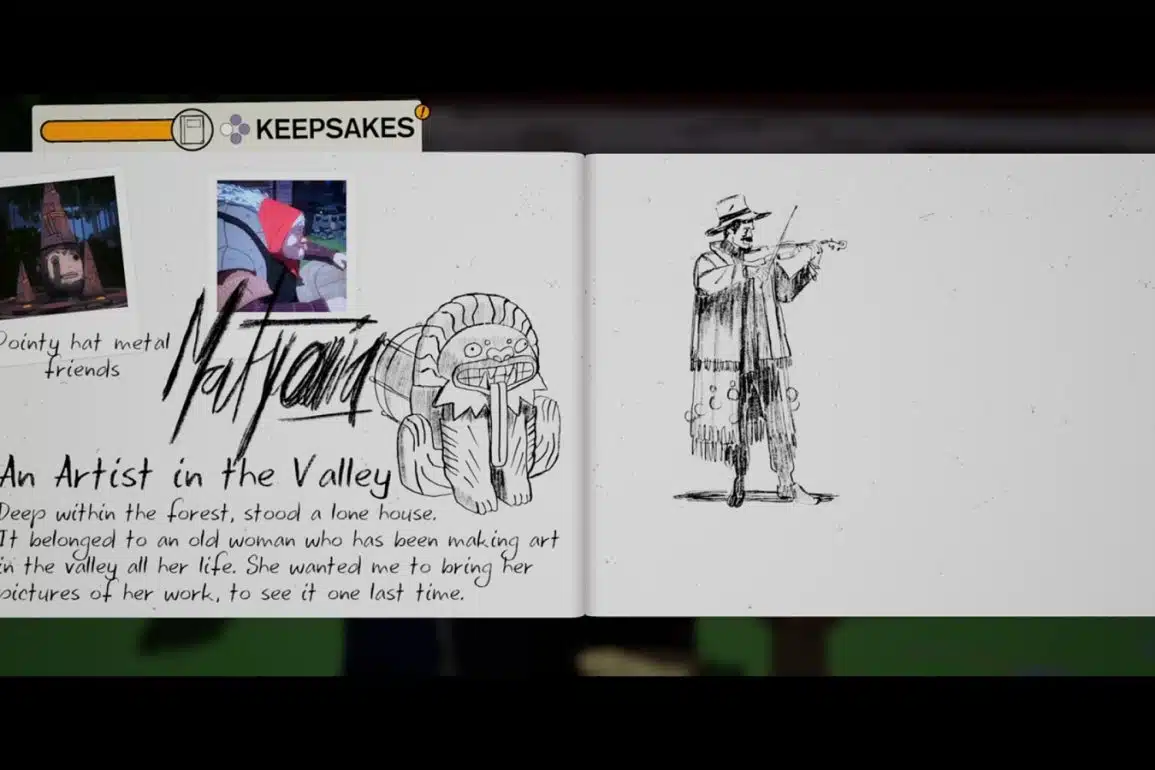 KEEPSAKES
Pointy hat metal
friends
Matyora
An Artist in the Valley
Deep within the forest, stood a lone house.
It belonged to an old woman who has been making art
in the valley all her life. She wanted me to bring her
pictures of her work, to see it one last time.